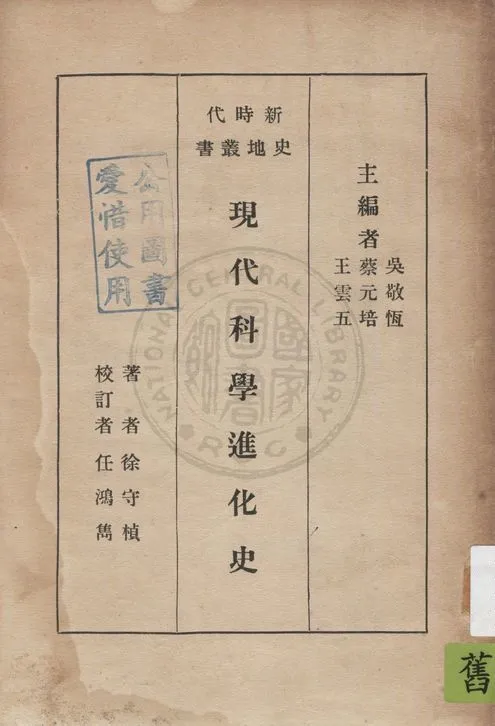 主編者
吳敬恆
蔡元培
王雲五
新時代
史地叢書
現代科學進化史
著者徐守楨
校訂者任鴻雋
公用圖書
愛惜使用
國家
圖書
館藏
NATIONAL CENTRAL LIBRARY
ROC
舊